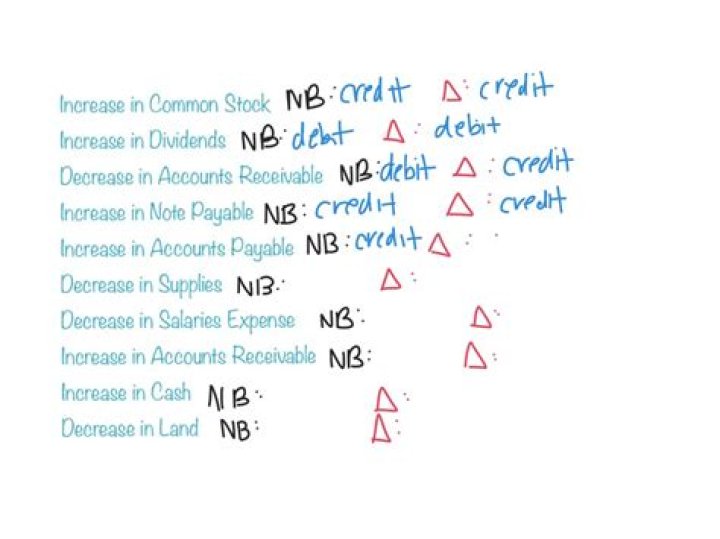 Increase in Common Stock NB: credit Δ: credit
Increase in Dividends NB: debit Δ: debit
Decrease in Accounts Receivable NB: debit Δ: credit
Increase in Note Payable NB: credit Δ: credit
Increase in Accounts Payable NB: credit Δ:
Decrease in Supplies NB: Δ:
Decrease in Salaries Expense NB: Δ:
Increase in Accounts Receivable NB: Δ:
Increase in Cash NB: Δ:
Decrease in Land NB: Δ: